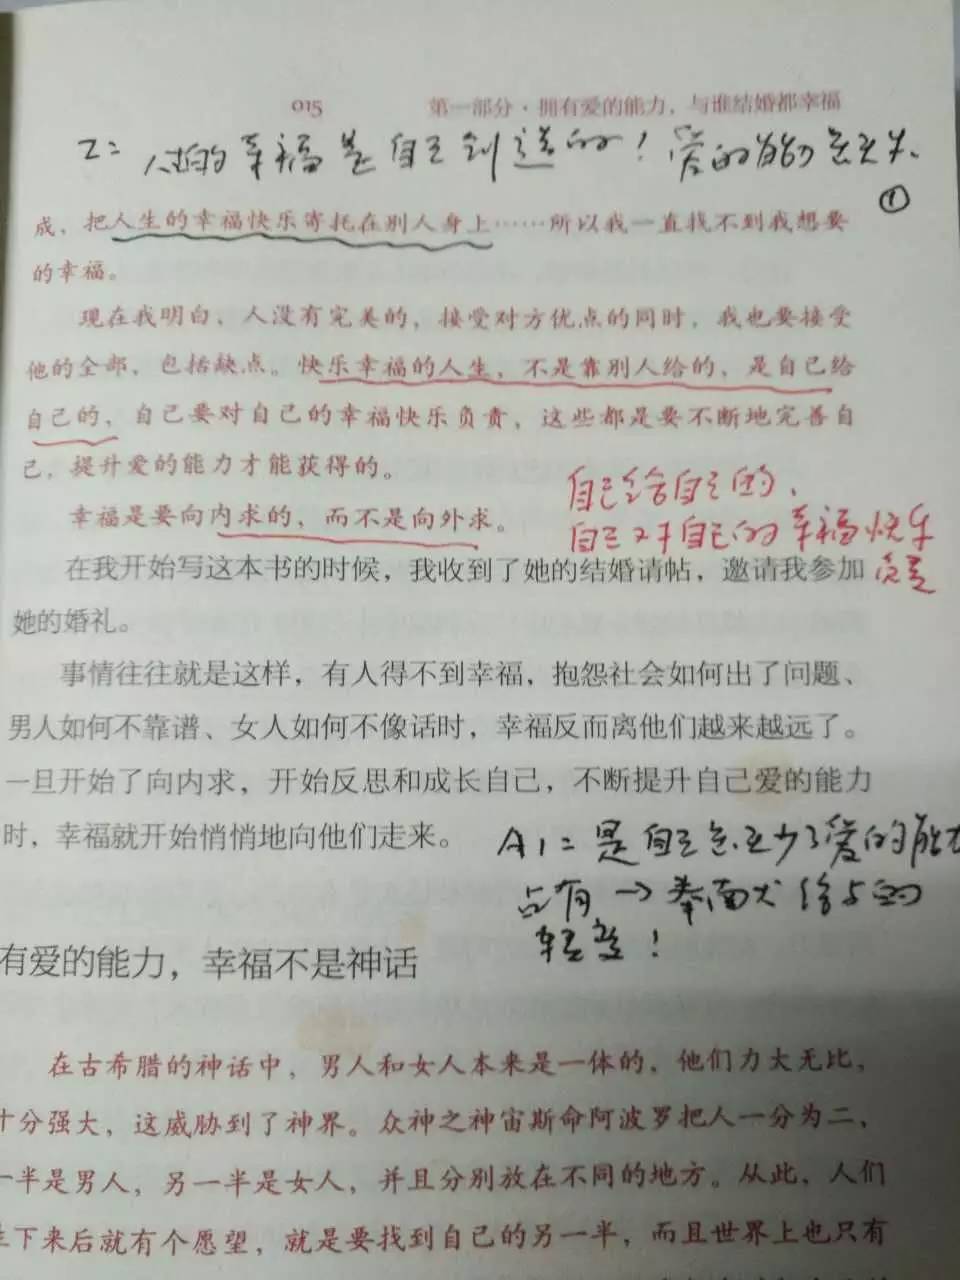 015 第一部分·拥有爱的能力,与谁结婚都幸福
I: 人的幸福是自己创造的!爱的能力
①
成,把人生的幸福快乐寄托在别人身上……所以我一直找不到我想要
的幸福。
现在我明白,人没有完美的,接受对方优点的同时,我也要接受
他的全部,包括缺点。快乐幸福的人生,不是靠别人给的,是自己给
自己的,自己要对自己的幸福快乐负责,这些都是要不断地完善自
己,提升爱的能力才能获得的。
幸福是要向内求的,而不是向外求。
自己给自己的、
自己对自己的幸福快乐
负责
在我开始写这本书的时候,我收到了她的结婚请帖,邀请我参加
她的婚礼。
事情往往就是这样,有人得不到幸福,抱怨社会如何出了问题、
男人如何不靠谱、女人如何不像话时,幸福反而离他们越来越远了。
一旦开始了向内求,开始反思和成长自己,不断提升自己爱的能力
时,幸福就开始悄悄地向他们走来。
A1: 是自己 少了爱的能力
占有 → 的
!
有爱的能力,幸福不是神话
在古希腊的神话中,男人和女人本来是一体的,他们力大无比,
十分强大,这威胁到了神界。众神之神宙斯命阿波罗把人一分为二,
一半是男人,另一半是女人,并且分别放在不同的地方。从此,人们
生下来后就有个愿望,就是要找到自己的另一半,而且世界上也只有